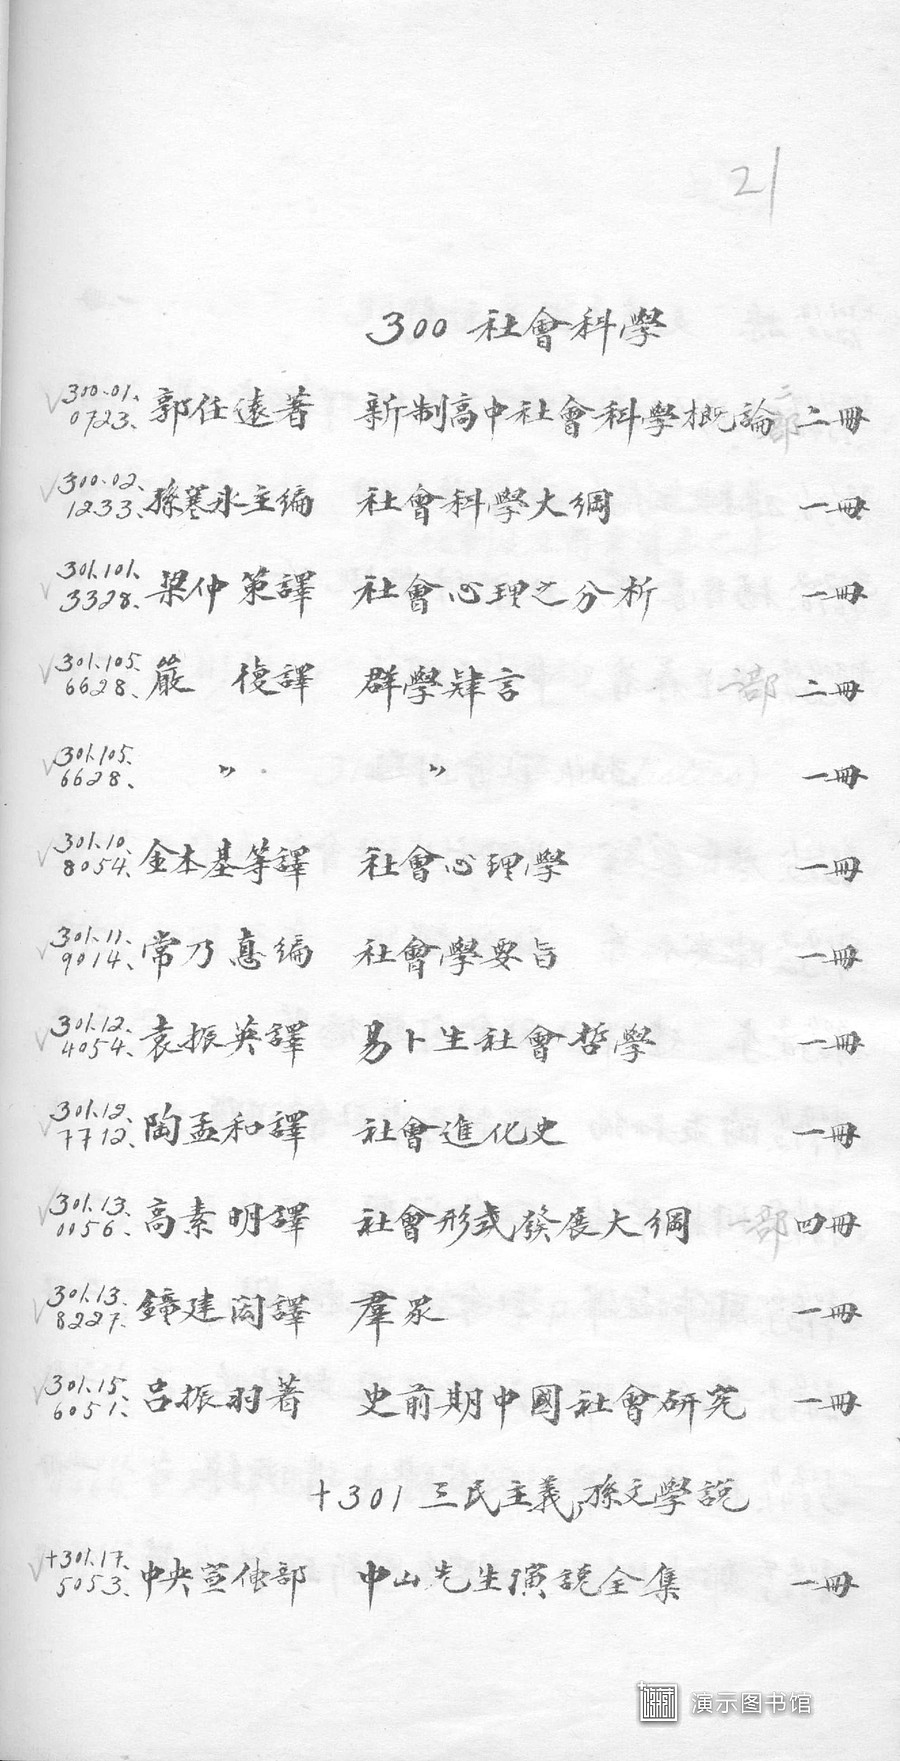 21
300 社會科學
300.01. 0723. 郭任遠著 新制高中社會科學概論 二部 二冊
300.02. 1233. 孫寒冰主編 社會科學大綱 一冊
301.101. 3328. 梁仲策譯 社會心理之分析 一冊
301.105. 6628. 嚴 復譯 群學肄言 一部 二冊
301.105. 6628. 〃 〃 一冊
301.10. 8054. 金本基等譯 社會心理學 一冊
301.11. 9014. 常乃惪編 社會學要旨 一冊
301.12. 4054. 袁振英譯 易卜生社會哲學 一冊
301.12. 7712. 陶孟和譯 社會進化史 一冊
301.13. 0056. 高素明譯 社會形式發展大綱 一部 四冊
301.13. 8227. 鐘建閎譯 羣眾 一冊
301.15. 6051. 呂振羽著 史前期中國社會研究 一冊
+301 三民主義,孫文學說
+301.17. 5053. 中央宣傳部 中山先生演說全集 一冊
演示图书馆